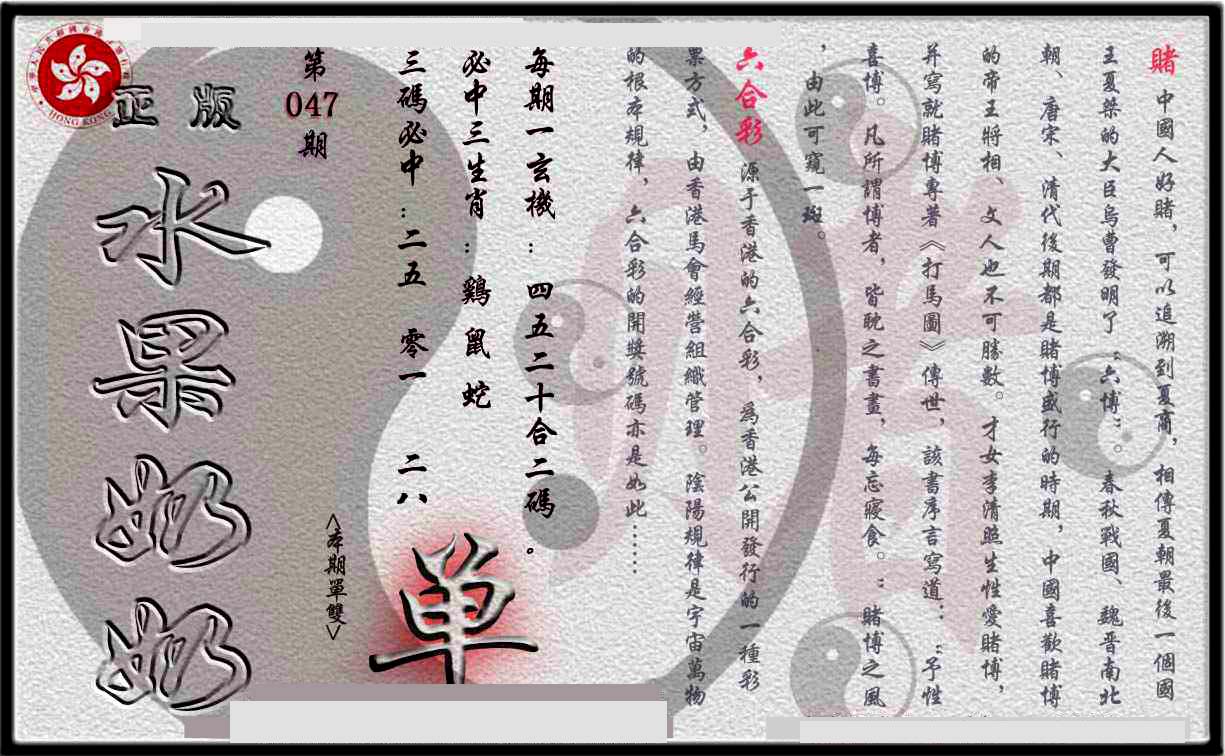 賭 中國人好賭，可以追溯到夏商，相傳夏朝最後一個國
王夏桀的大臣烏曹發明了“六博”。春秋戰國、魏晋南北
朝、唐宋、清代後期都是賭博盛行的時期，中國喜歡賭博
的帝王將相、文人也不可勝數。才女李清照生性愛賭博，
并寫就賭博專著《打馬圖》傳世，該書序言寫道：“予性
喜博。凡所謂博者，皆耽之書畫，每忘寢食。”賭博之風
，由此可窺一斑。
六合彩 源于香港的六合彩，為香港公開發行的一種彩
票方式，由香港馬會經營組織管理。陰陽規律是宇宙萬物
的根本規律，六合彩的開獎號碼亦是如此……
每期一玄機：四五二十合二碼。
必中三生肖：鷄鼠蛇
三碼必中：二五 零一 二八
<本期單雙>
单
第
047
期
正版
水果奶奶
HONG KONG